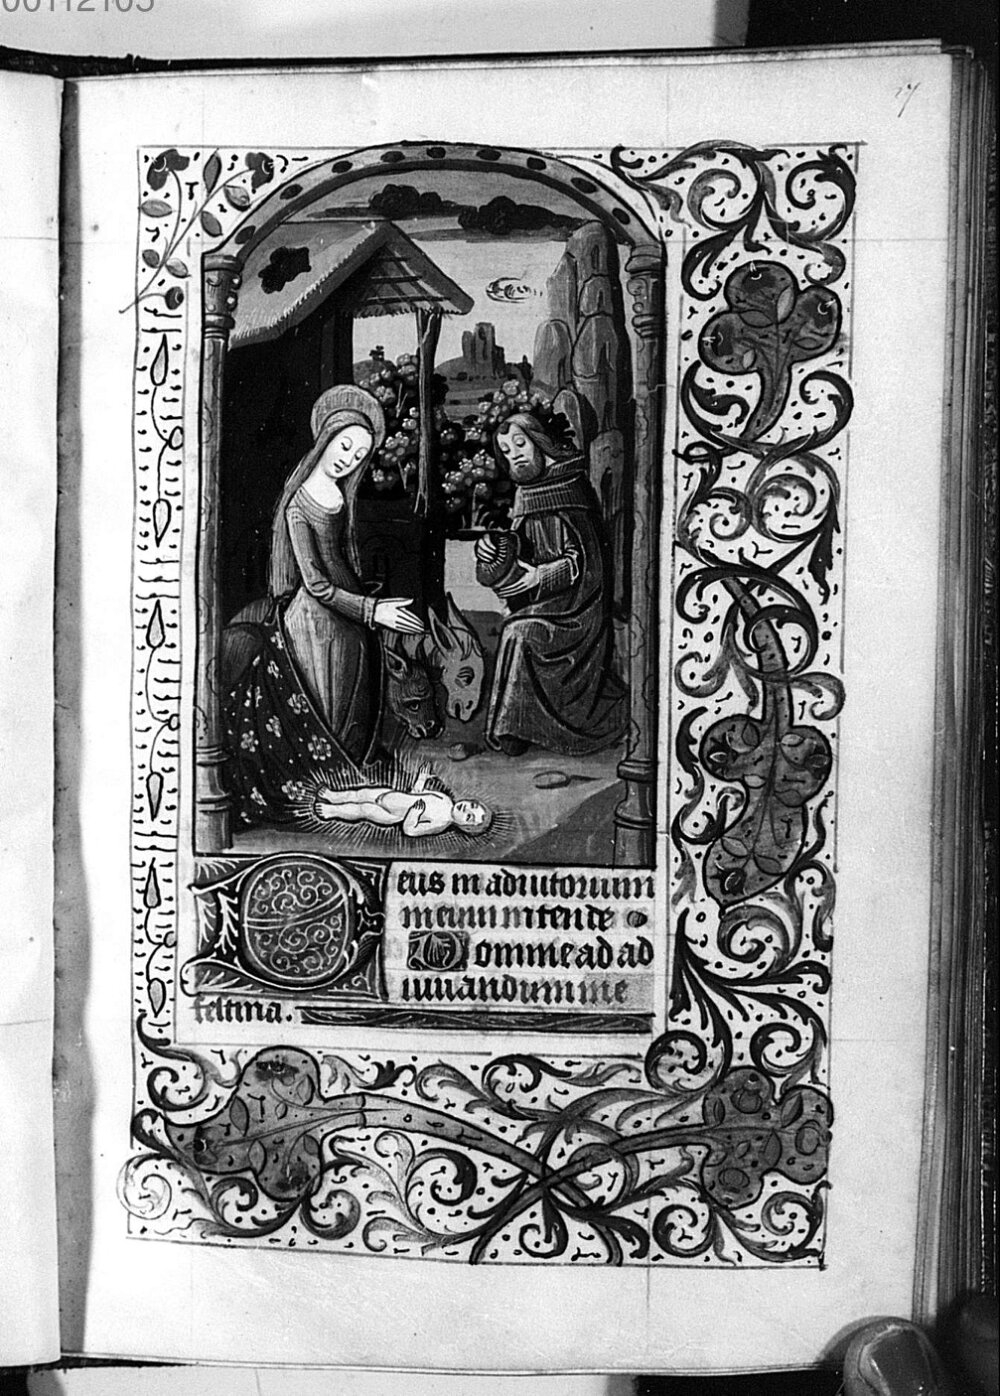 00112105
27
Deus in adiutorium
meum intende
Domine ad ad
iuuandum me
festina.